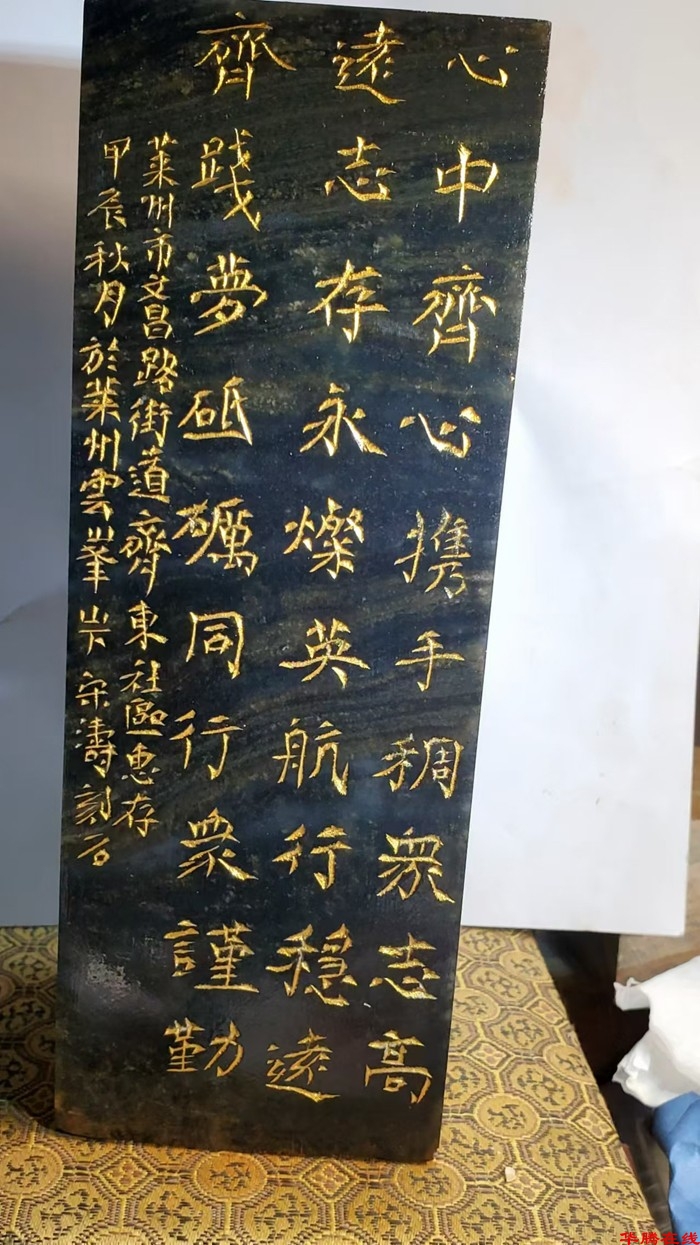 心中齊心携手稠衆志高
遠志存永燦英航行穩遠
齊踐夢砥礪同行衆謹勤
萊州市文昌路街道齊東社區惠存
甲辰秋月於萊州雲峯山下宋濤刻石
华腾在线